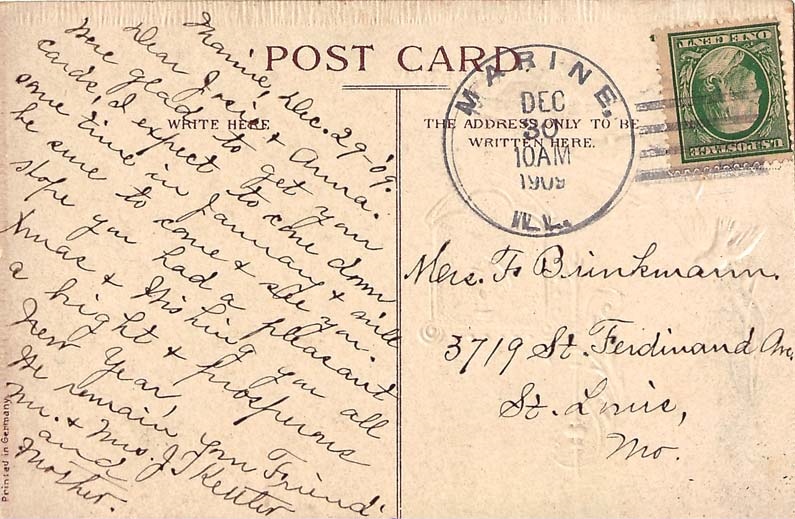 POST CARD
WRITE HERE
THE ADDRESS ONLY TO BE
WRITTEN HERE.
Marine, Dec. 29-'09.
Dear Josie & Anna.
Were glad to get your
cards, I expect to come down
some time in January & will
be sure to come & see you.
Hope you had a pleasant
Xmas & Wishing you all
a bright & prosperous
New Year,
We remain your Friend
Mr. & Mrs. J.
and
Mother.
MARINE.
DEC
30
10AM
1909
ILL.
U.S. POSTAGE
ONE CENT
Mrs. F. Brinkmann.
3719 St. Ferdinand Ave.
St. Louis,
Mo.
Printed in Germany